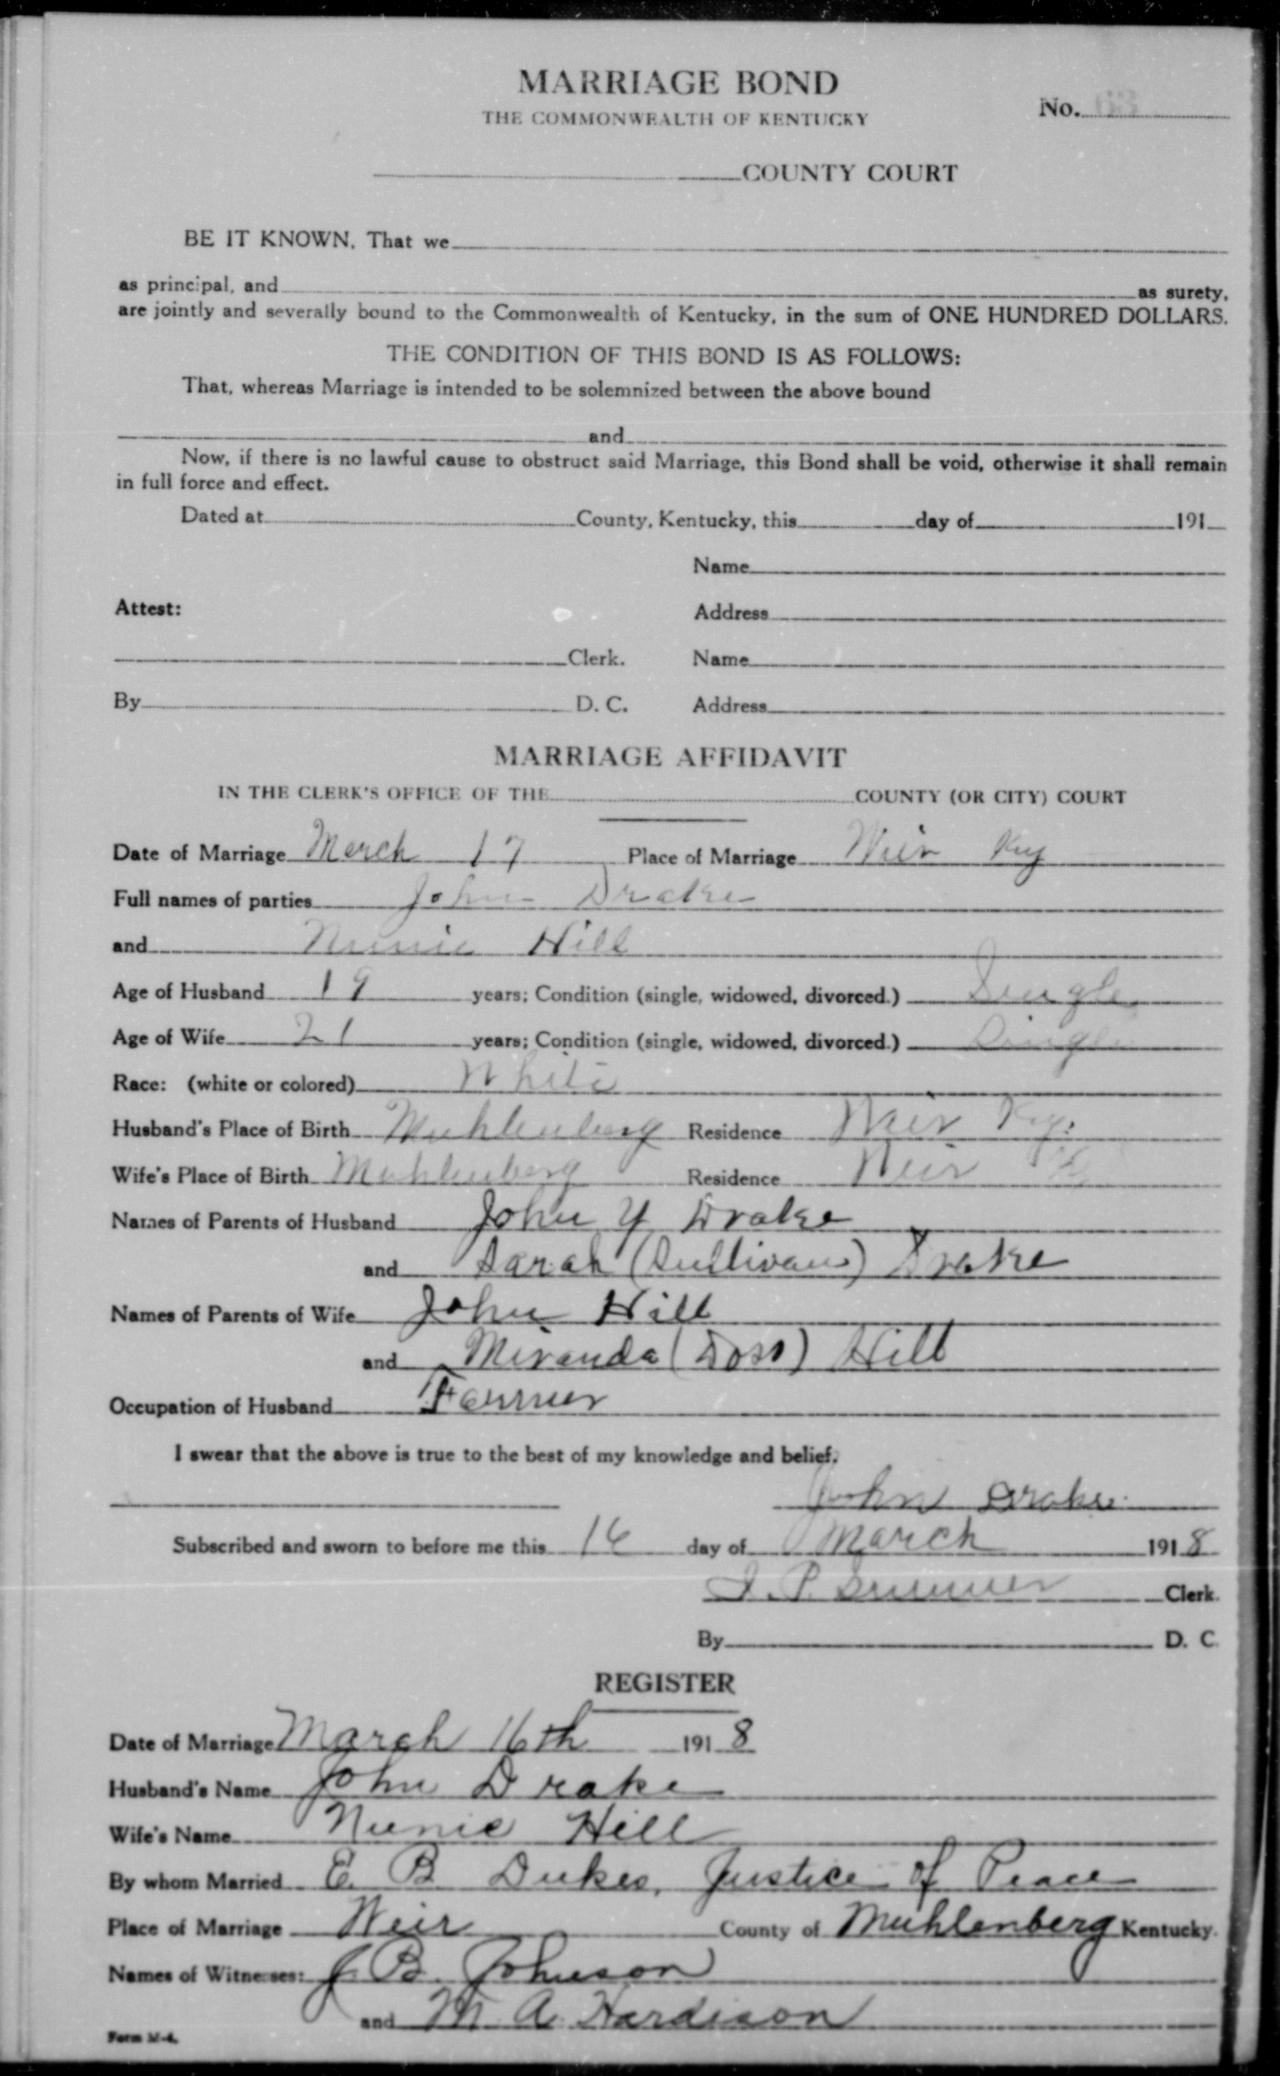 MARRIAGE BOND
THE COMMONWEALTH OF KENTUCKY
No. 63
COUNTY COURT
BE IT KNOWN, That we
as principal, and as surety,
are jointly and severally bound to the Commonwealth of Kentucky, in the sum of ONE HUNDRED DOLLARS.
THE CONDITION OF THIS BOND IS AS FOLLOWS:
That, whereas Marriage is intended to be solemnized between the above bound
and
Now, if there is no lawful cause to obstruct said Marriage, this Bond shall be void, otherwise it shall remain
in full force and effect.
Dated at County, Kentucky, this day of 191
Name
Attest: Address
Clerk. Name
By D. C. Address
MARRIAGE AFFIDAVIT
IN THE CLERK'S OFFICE OF THE COUNTY (OR CITY) COURT
Date of Marriage March 17 Place of Marriage Weir Ky
Full names of parties John Drake
and Nunie Hill
Age of Husband 19 years; Condition (single, widowed, divorced.) Single
Age of Wife 21 years; Condition (single, widowed, divorced.) Single
Race: (white or colored) White
Husband's Place of Birth Muhlenberg Residence Weir Ky.
Wife's Place of Birth Muhlenberg Residence Weir Ky
Names of Parents of Husband John Y Drake
and Sarah (Sullivan) Drake
Names of Parents of Wife John Hill
and Miranda (Doss) Hill
Occupation of Husband Farmer
I swear that the above is true to the best of my knowledge and belief.
John Drake
Subscribed and sworn to before me this 16 day of March 1918
Clerk.
By D. C.
REGISTER
Date of Marriage March 16th 1918
Husband's Name John Drake
Wife's Name Nunie Hill
By whom Married E. B Dukes, Justice of Peace
Place of Marriage Weir County of Muhlenberg Kentucky.
Names of Witnesses: J. B. Johnson
and M. A. Hardison
Form M-4.